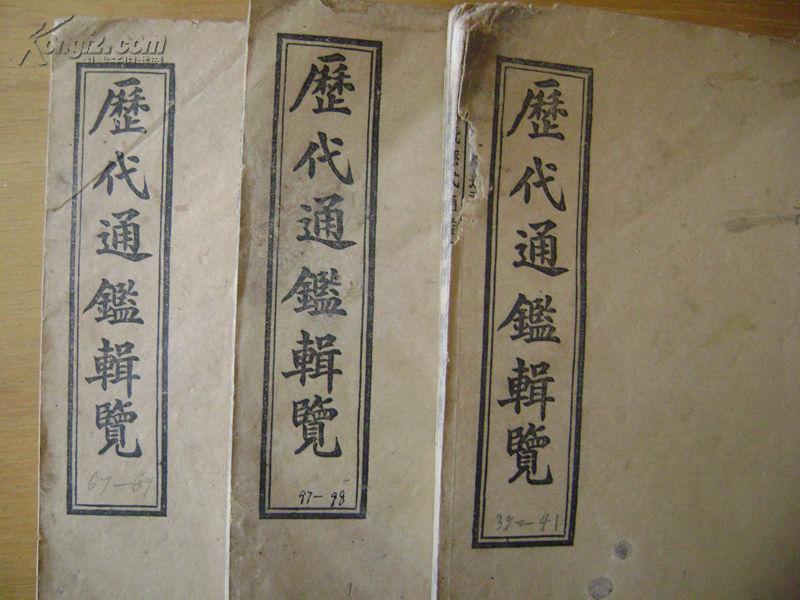 Kongfz.com
歷代通鑑輯覽
67—69
歷代通鑑輯覽
97—98
歷代通鑑輯覽
39—41